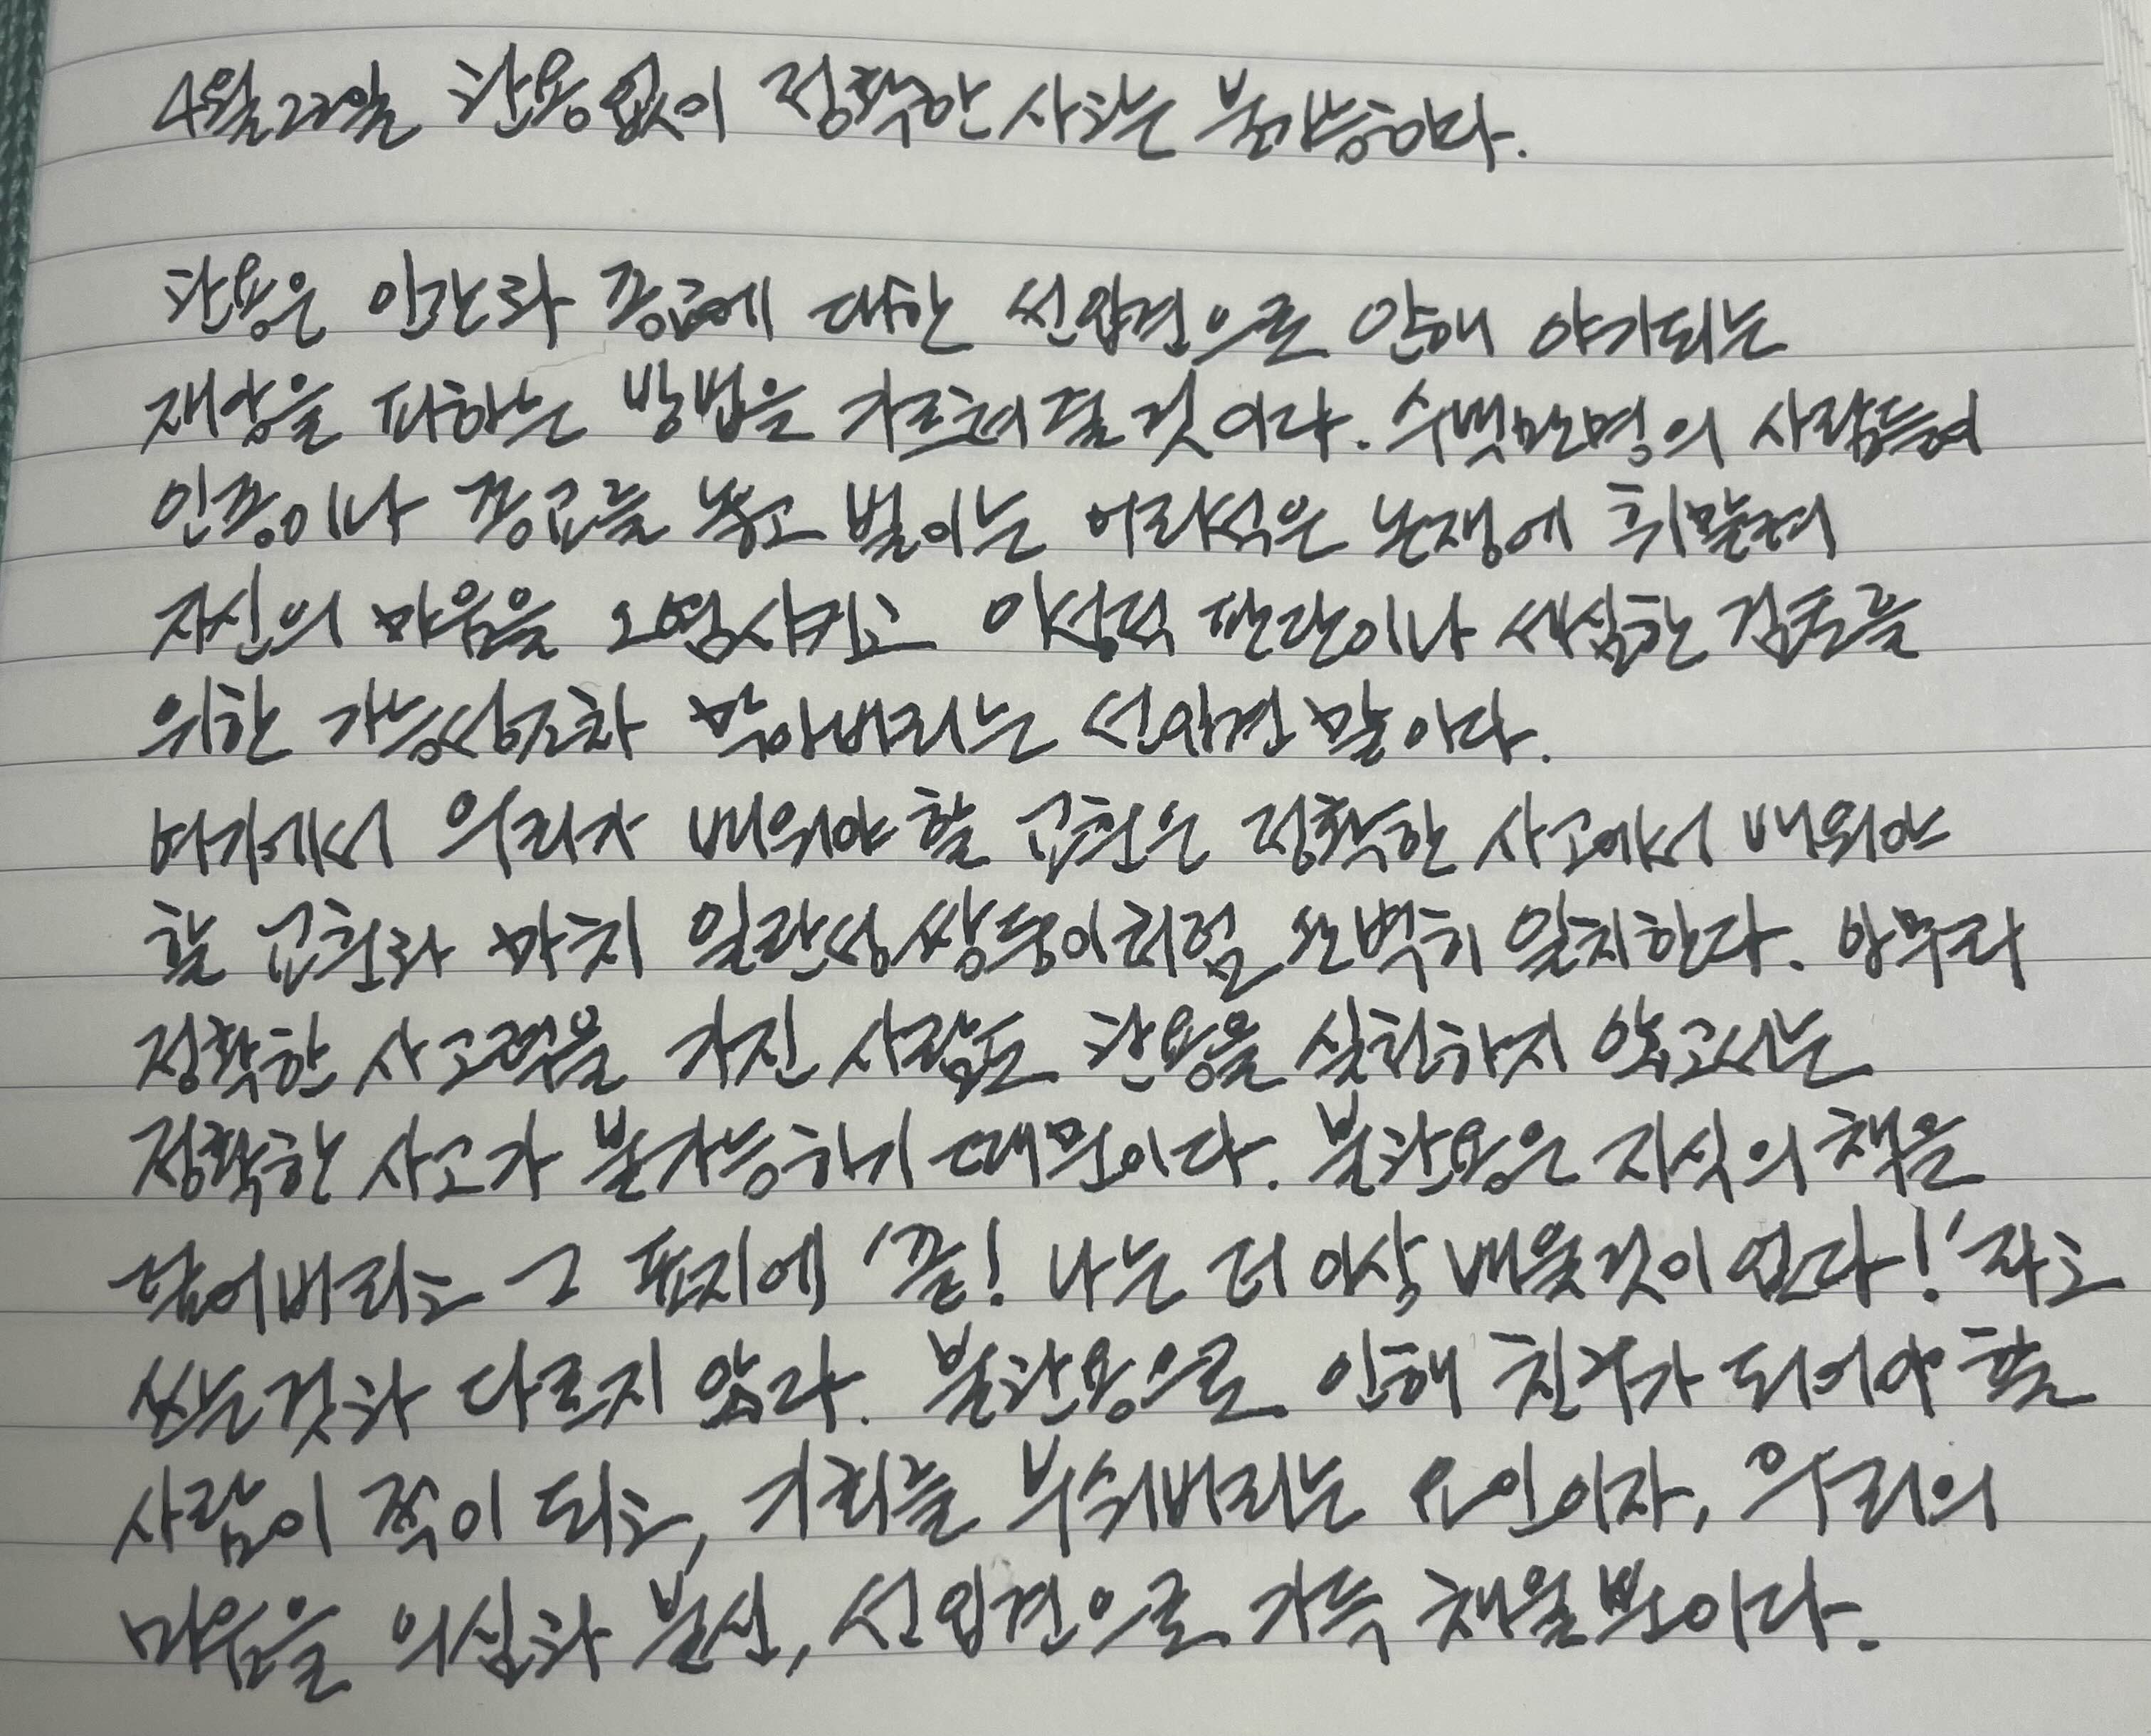 4월22일 관용없이 정확한 사고는 불가능하다.
관용은 인간과 종교에 대한 선입견으로 인해 야기되는
재앙을 피하는 방법을 가르쳐 줄 것이다. 수백만명의 사람들이
인종이나 종교를 놓고 벌이는 어리석은 논쟁에 휘말려
자신의 마음을 오염시키고 이성적 판단이나 세심한 검토를
위한 가능성조차 막아버리는 선입견 말이다.
여기에서 우리가 배워야 할 교훈은 정확한 사고에서 배워야
할 교훈과 마치 일란성 쌍둥이처럼 완벽히 일치한다. 아무리
정확한 사고력을 가진 사람도 관용을 실천하지 않고서는
정확한 사고가 불가능하기 때문이다. 불관용은 지식의 책을
닫아버리고 그 표지에 '끝! 나는 더 이상 배울것이 없다!'라고
쓰는것과 다르지 않다. 불관용으로 인해 친구가 되어야 할
사람이 적이 되고, 기회를 부숴버리는 요인이자, 우리의
마음을 의심과 불신, 선입견으로 가득 채울뿐이다.